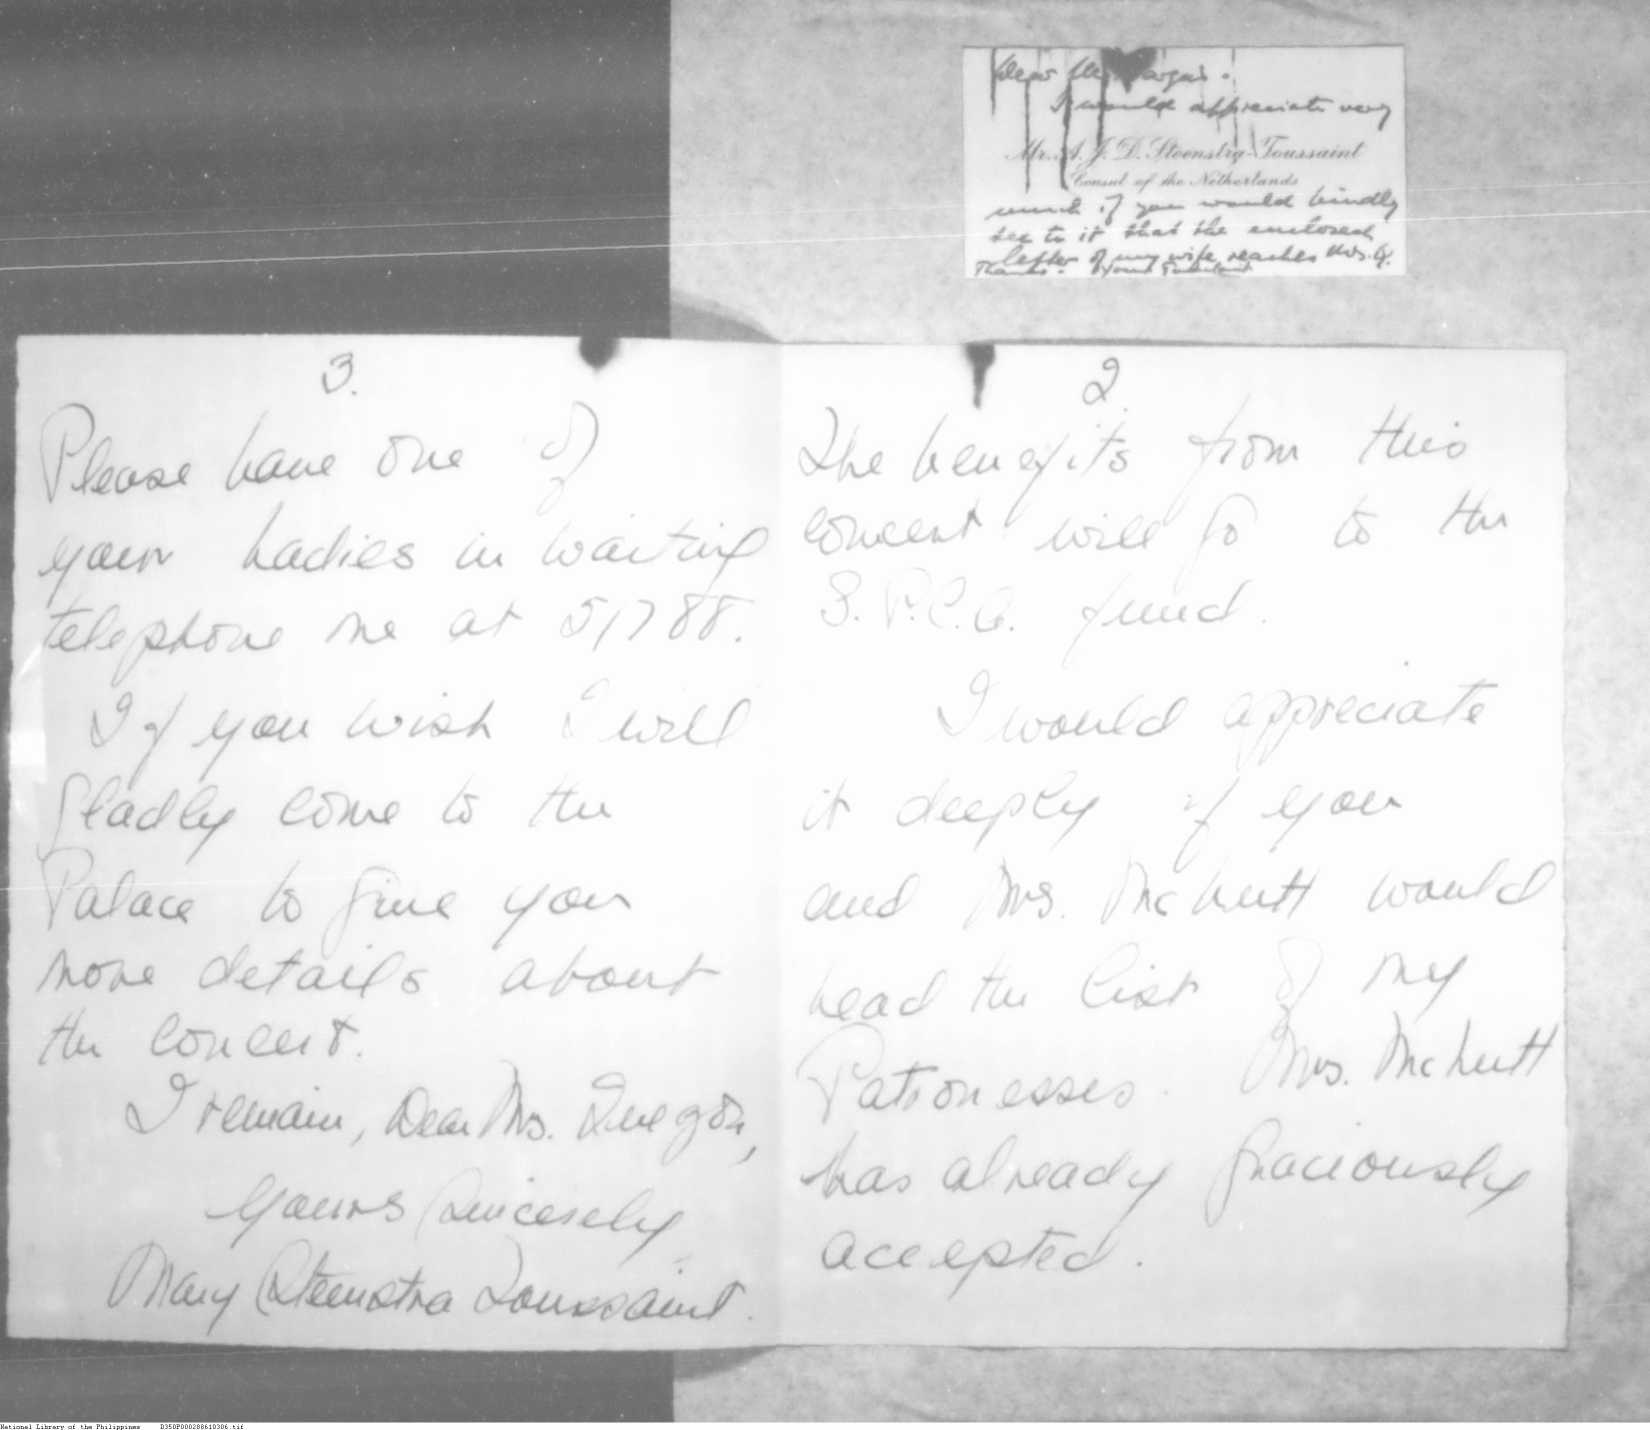 Dear Mr. Vargas.
I would appreciate very
Mr. A. J. D. Steenstra-Toussaint
Consul of the Netherlands
much if you would kindly
see to it that the enclosed
letter of my wife reaches Mrs. Q.
Thanks.
2
The benefits from this
concert will go to the
S.P.C.A. fund.
I would appreciate
it deeply if you
and Mrs. McNutt would
head the list of my
Patronesses. Mrs. McNutt
has already graciously
accepted.
3.
Please have one of
your Ladies in waiting
telephone me at 51788.
If you wish I will
gladly come to the
Palace to give you
more details about
the concert.
I remain, Dear Mrs. Quezon,
Yours Sincerely,
Mary Steenstra Toussaint.
National Library of the Philippines D350P000208610306.tif